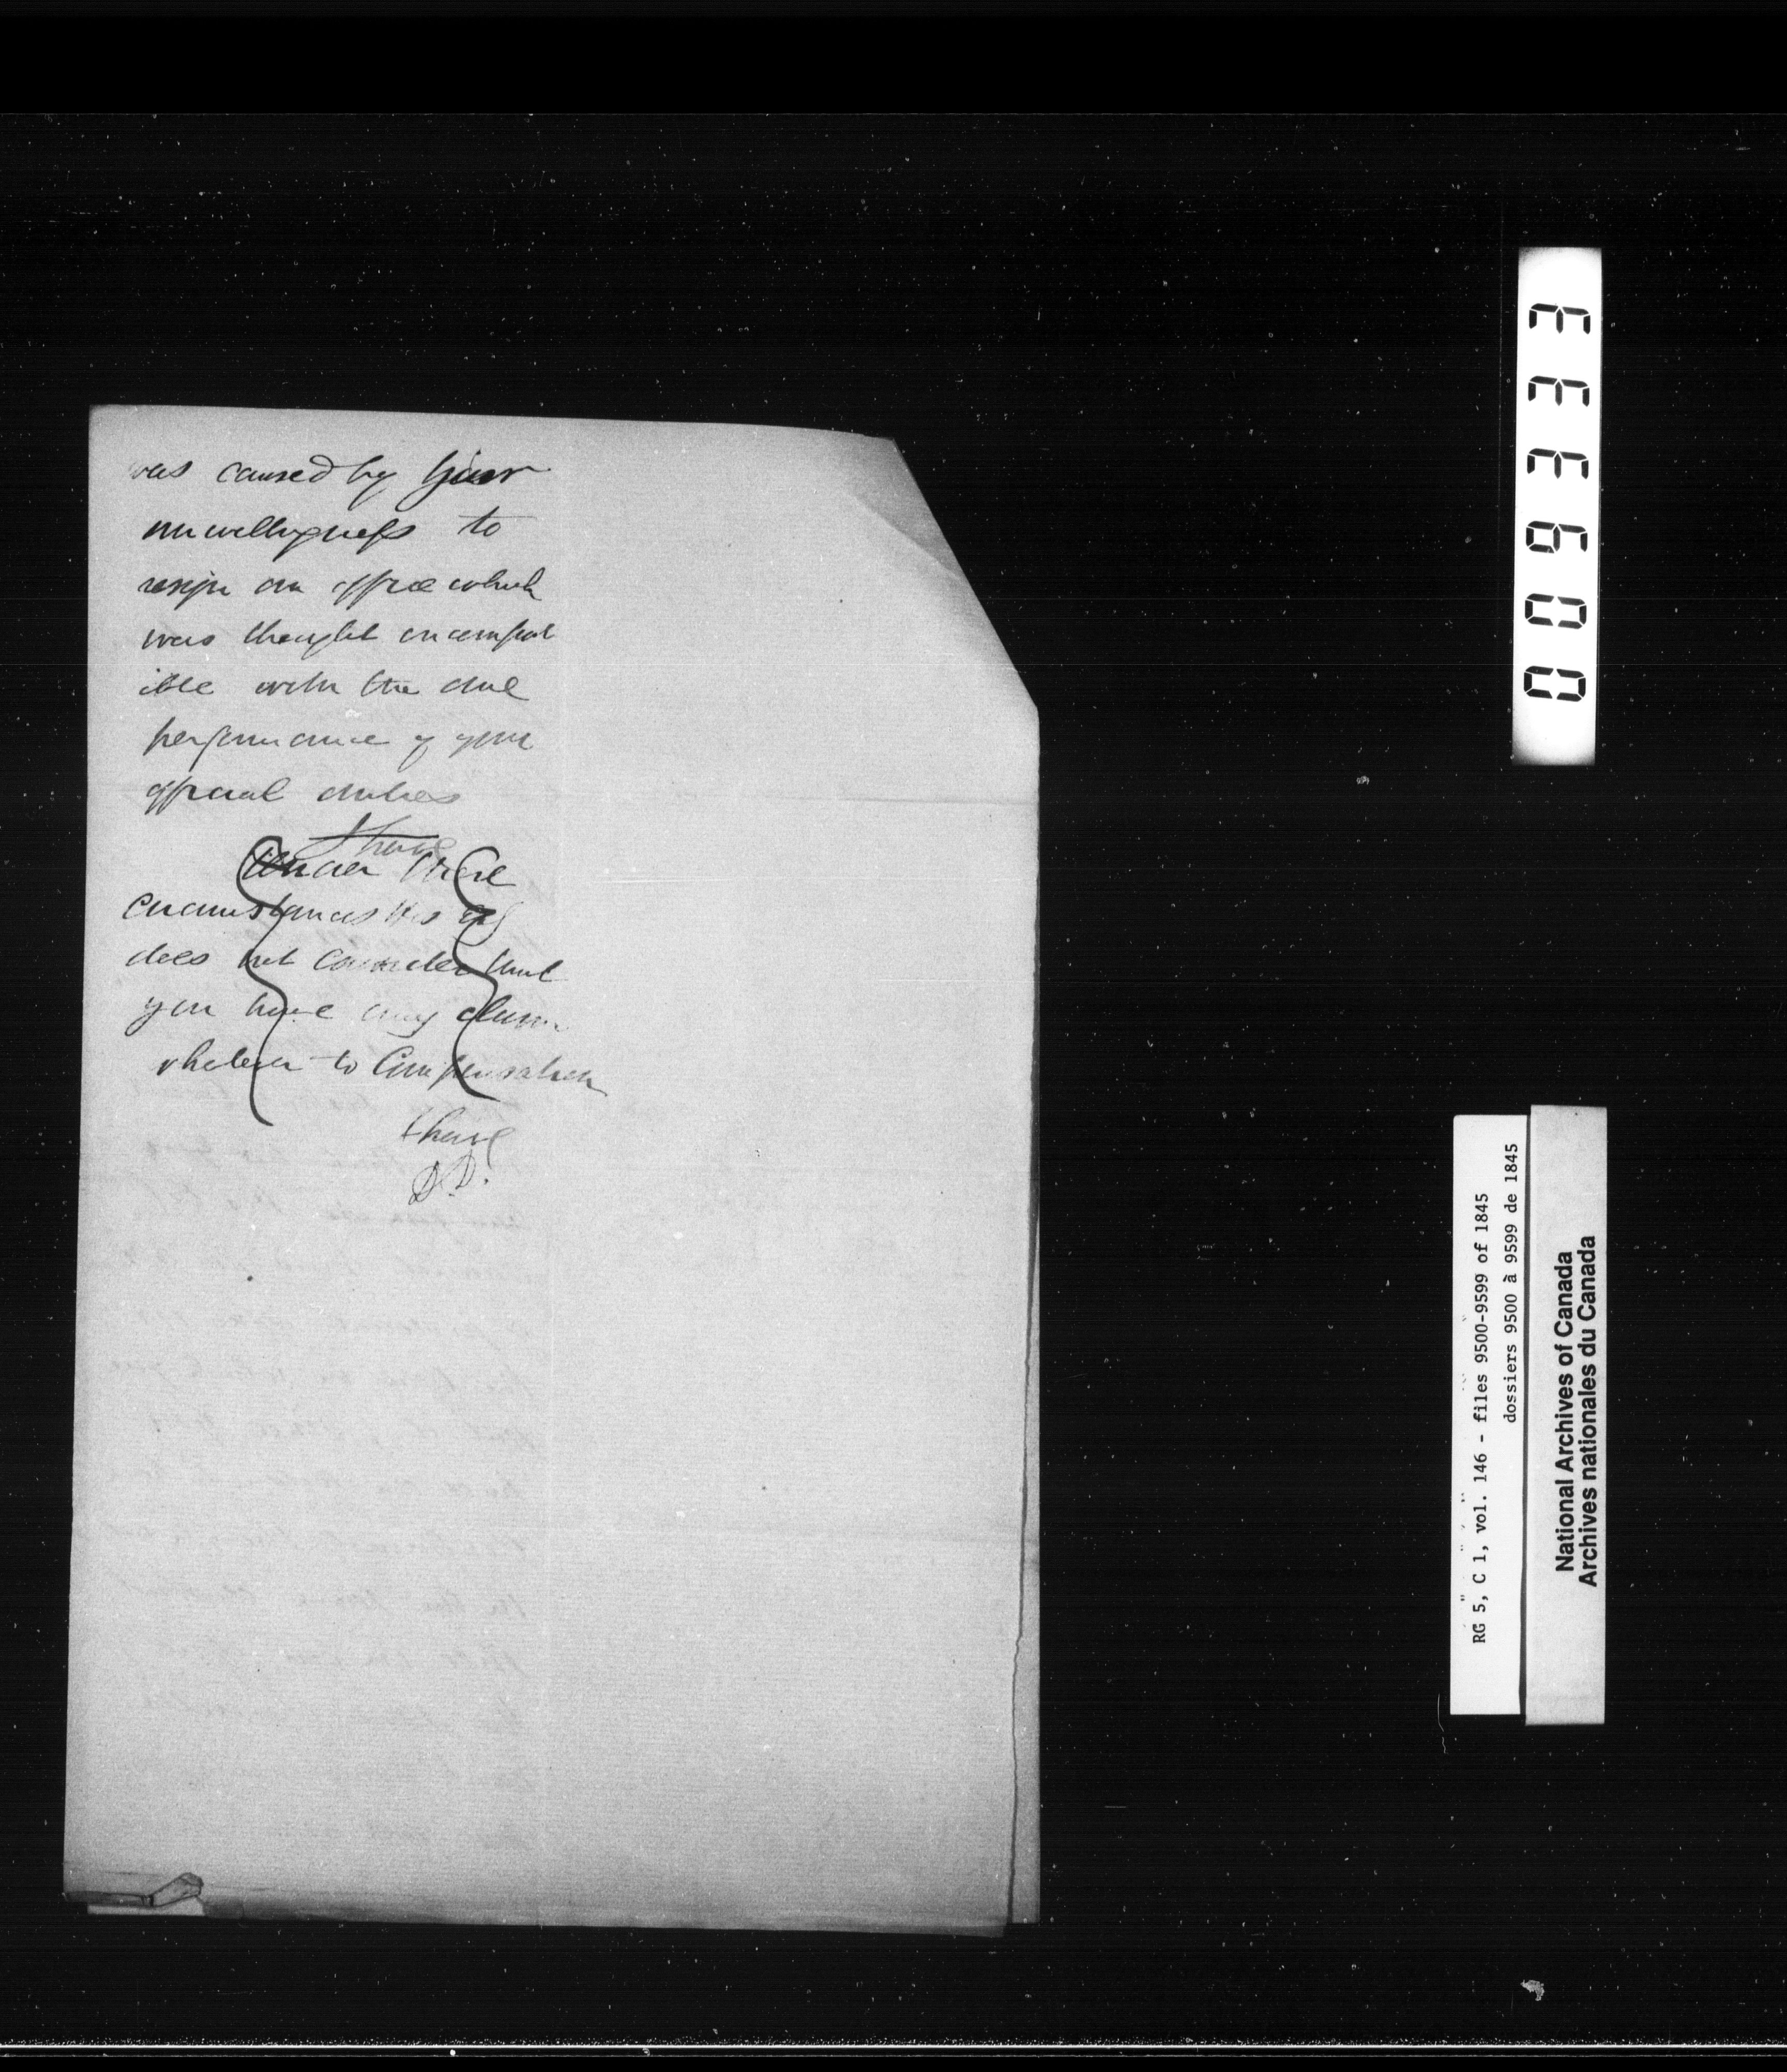 was caused by your
unwillingness to
resign an office which
was thought incompat
ible with the due
performance of your
official duties
I have
Under these
circumstances His Ex
does not consider that
you have any claim
whatever to Compensation
I have
D.D.
003633
RG 5, C 1, vol. 146 - files 9500-9599 of 1845
dossiers 9500 à 9599 de 1845
National Archives of Canada
Archives nationales du Canada